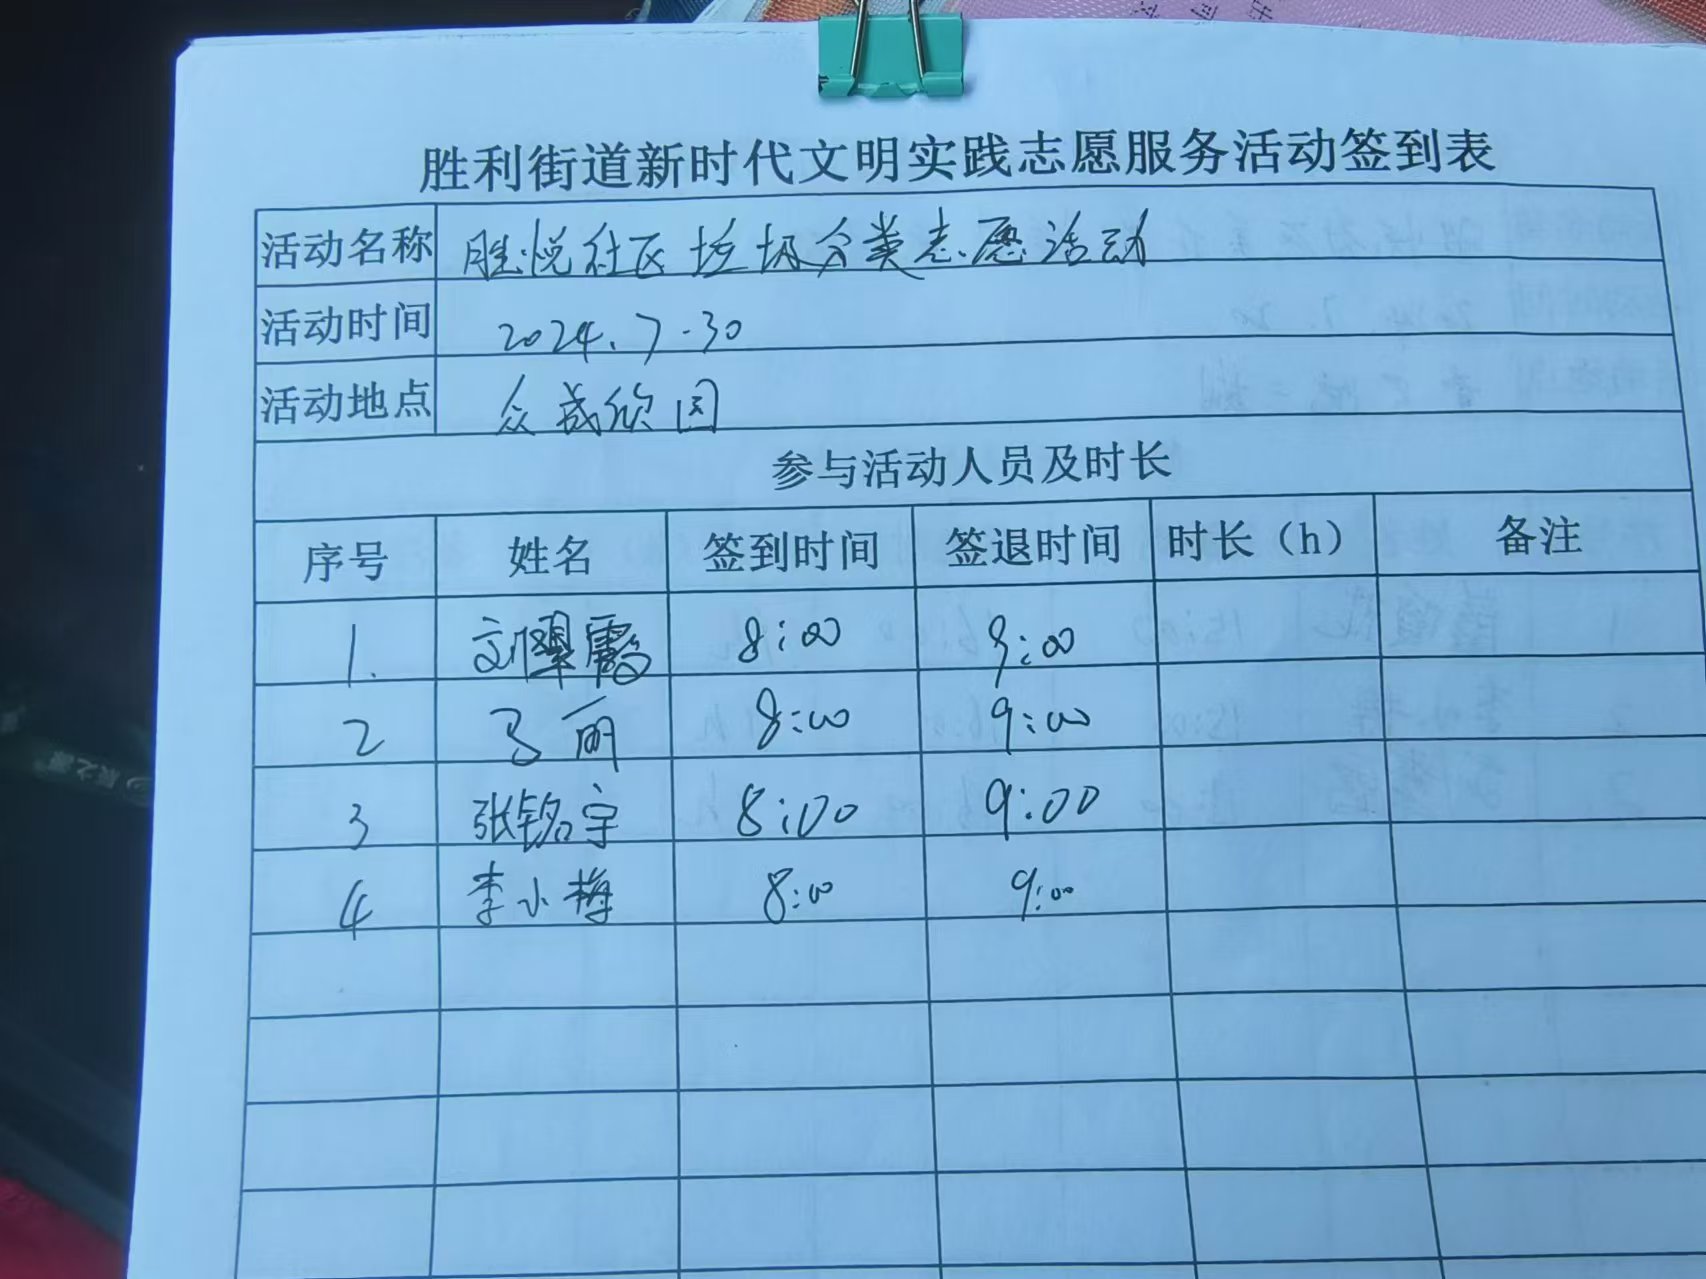 胜利街道新时代文明实践志愿服务活动签到表
活动名称 胜悦社区垃圾分类志愿活动
活动时间 2024.7.30
活动地点 众成欣园
参与活动人员及时长
序号 姓名 签到时间 签退时间 时长（h） 备注
1. 8:00 9:00
2 马丽 8:00 9:00
3 张铭宇 8:00 9:00
4 李小梅 8:00 9:00